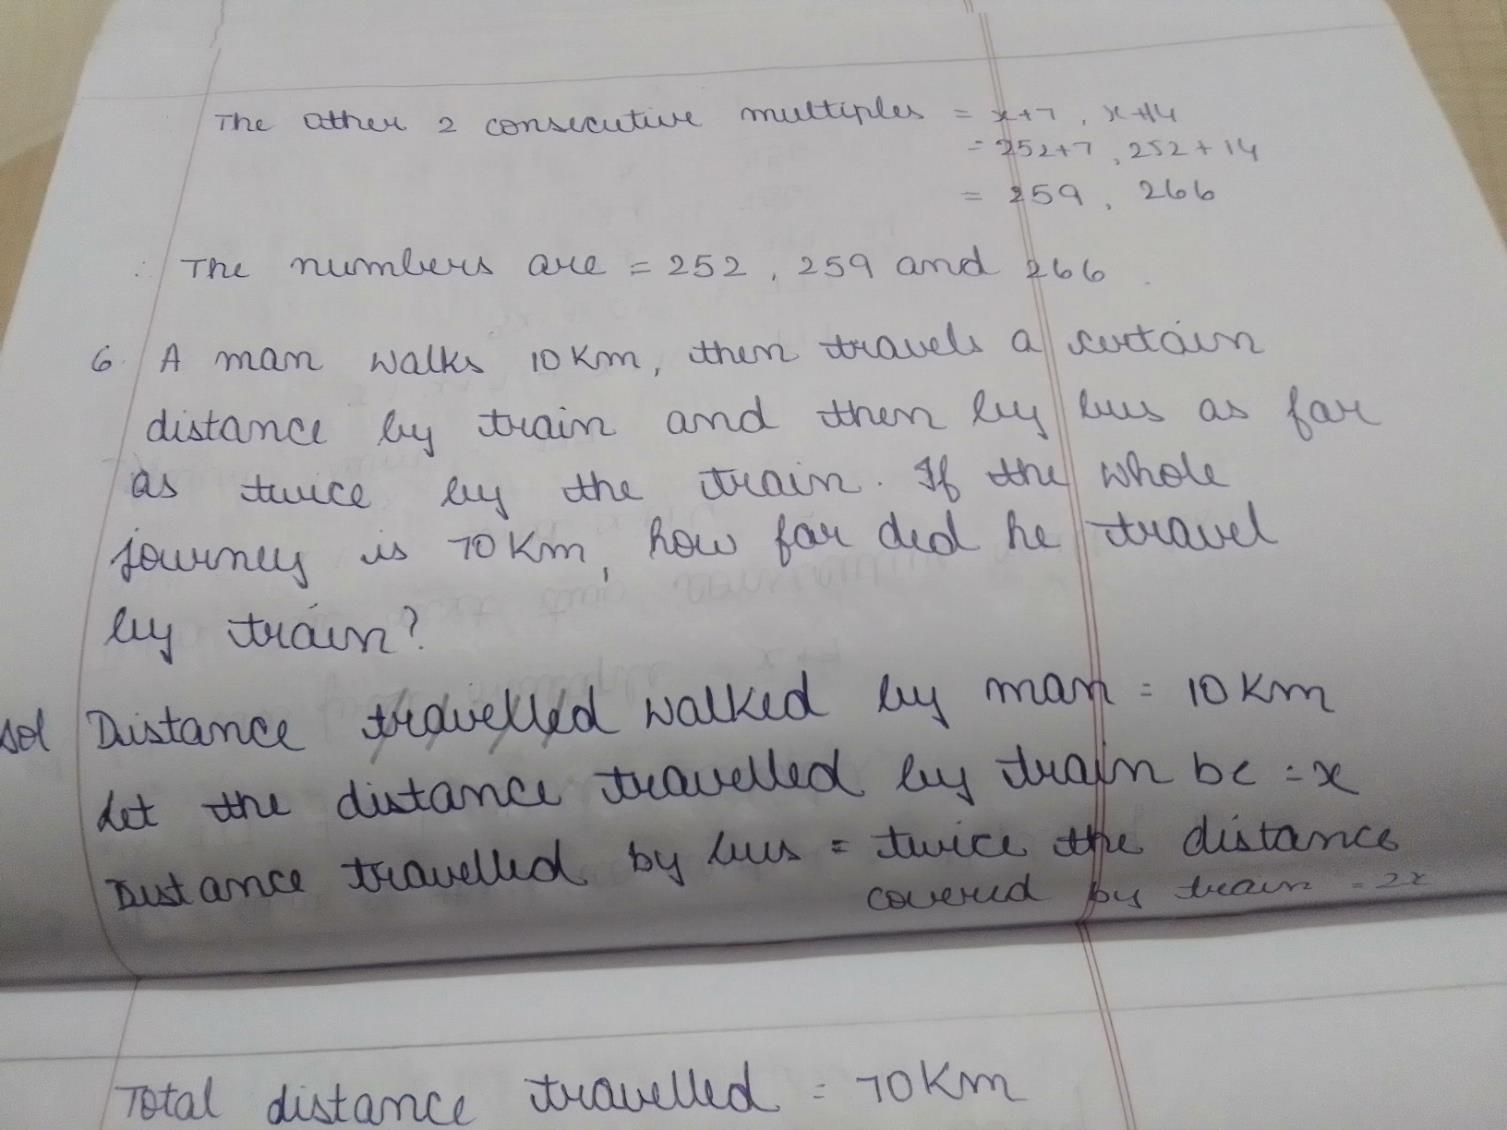 The other 2 consecutive multiples = x+7, x+14
= 252+7, 252+14
= 259, 266
∴ The numbers are = 252, 259 and 266
6. A man walks 10 Km, then travels a certain
distance by train and then by bus as far
as twice by the train. If the whole
journey is 70 Km, how far did he travel
by train?
Sol Distance travelled walked by man = 10 Km
Let the distance travelled by train be = x
Distance travelled by bus = twice the distance
covered by train = 2x
Total distance travelled = 70 Km